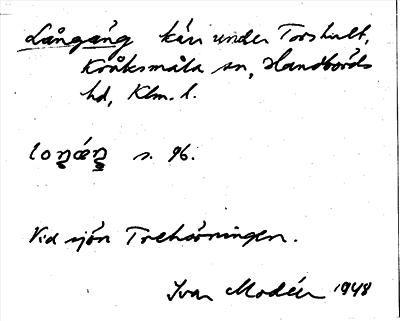 Långäng kärr under Torshult,
Kråksmåla sn, Handbörds
hd, Klm. l.
loŋæŋ s. 96.
Vid sjön Trehörningen.
Ivar Modéer 1948